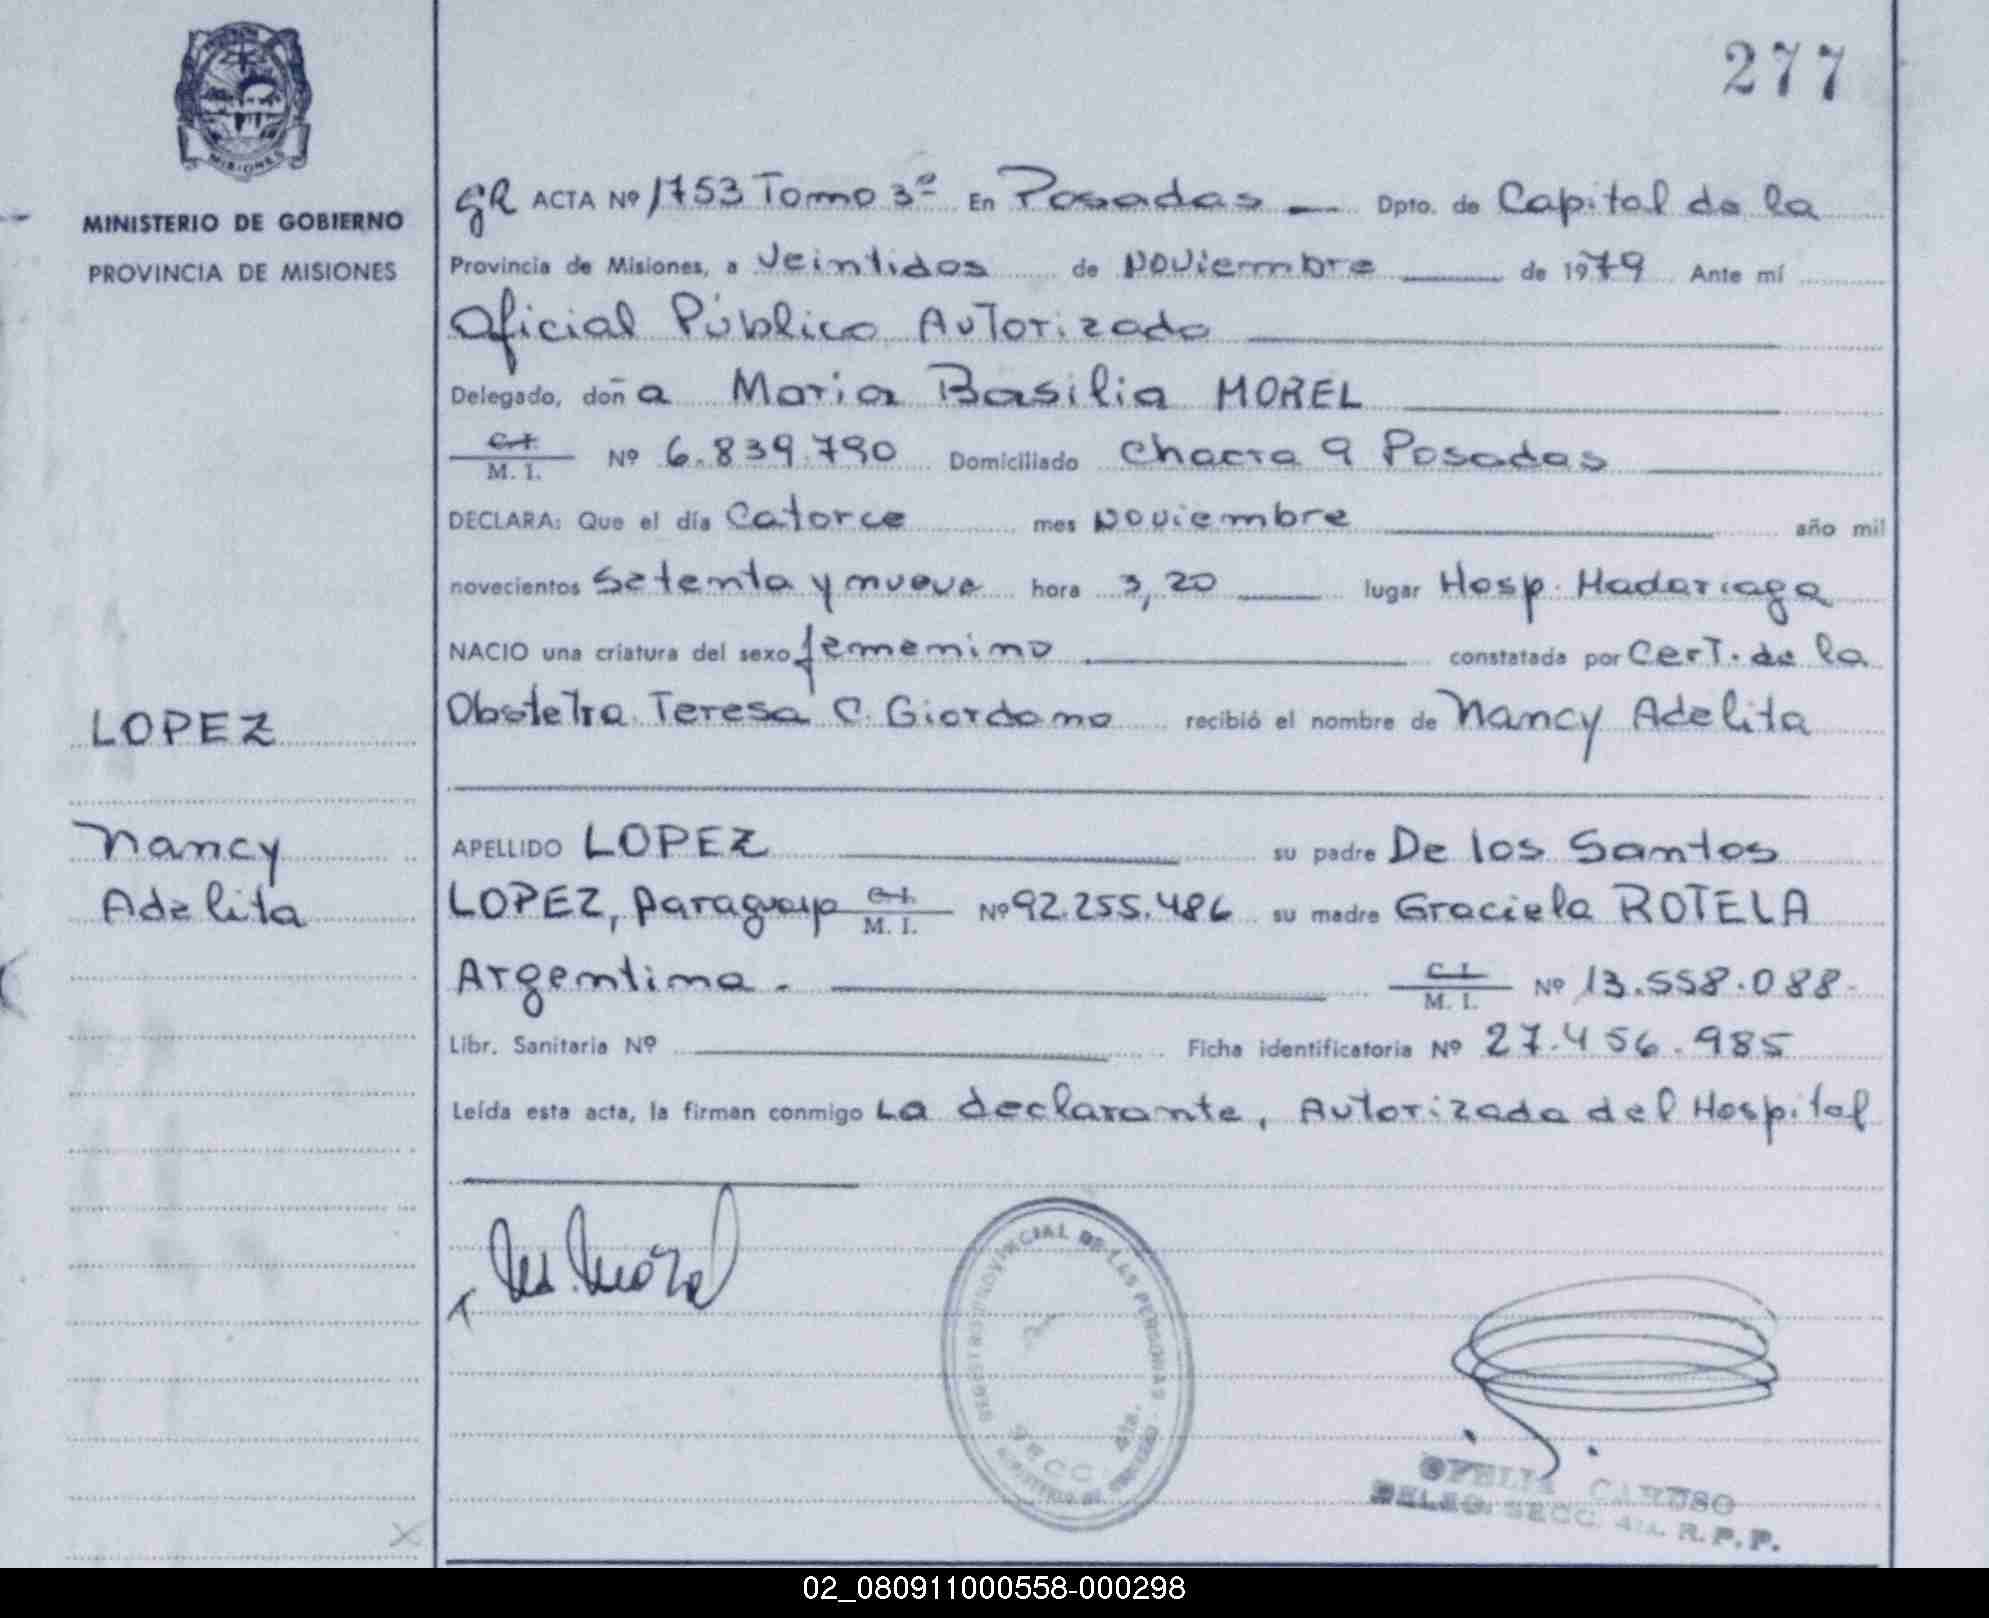 277
MISIONES
MINISTERIO DE GOBIERNO
PROVINCIA DE MISIONES
LOPEZ
Nancy
Adelita
gR ACTA Nº 1753 Tomo 3º En Posadas — Dpto. de Capital de la
Provincia de Misiones, a Veintidos de Noviembre de 1979 Ante mí
Oficial Público Autorizado
Delegado, doña Maria Basilia MOREL
C.I.
M. I. Nº 6.839.790 Domiciliado Chacra 9 Posadas
DECLARA: Que el día Catorce mes Noviembre año mil
novecientos Setenta y nueve hora 3,20 lugar Hosp. Madariaga
NACIO una criatura del sexo femenino constatada por Cert. de la
Obstetra Teresa C. Giordano recibió el nombre de Nancy Adelita
APELLIDO LOPEZ su padre De los Santos
LOPEZ, paraguayo C.I. M. I. Nº 92.255.486 su madre Graciela ROTELA
Argentina. C.I. M. I. Nº 13.558.088-
Libr. Sanitaria Nº Ficha identificatoria Nº 27.456.985
Leída esta acta, la firman conmigo La declarante, Autorizada del Hospital
M. Morel
REGISTRO PROVINCIAL DE LAS PERSONAS
SECC. 4ta.
MINISTERIO DE GOBIERNO
OFELIA CARUSO
DELEG. SECC. 4ta. R.P.P.
02_080911000558-000298